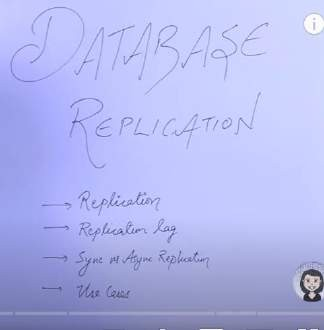 DATABASE
REPLICATION
→ Replication
→ Replication lag
→ Sync vs Async Replication
→ Use Cases